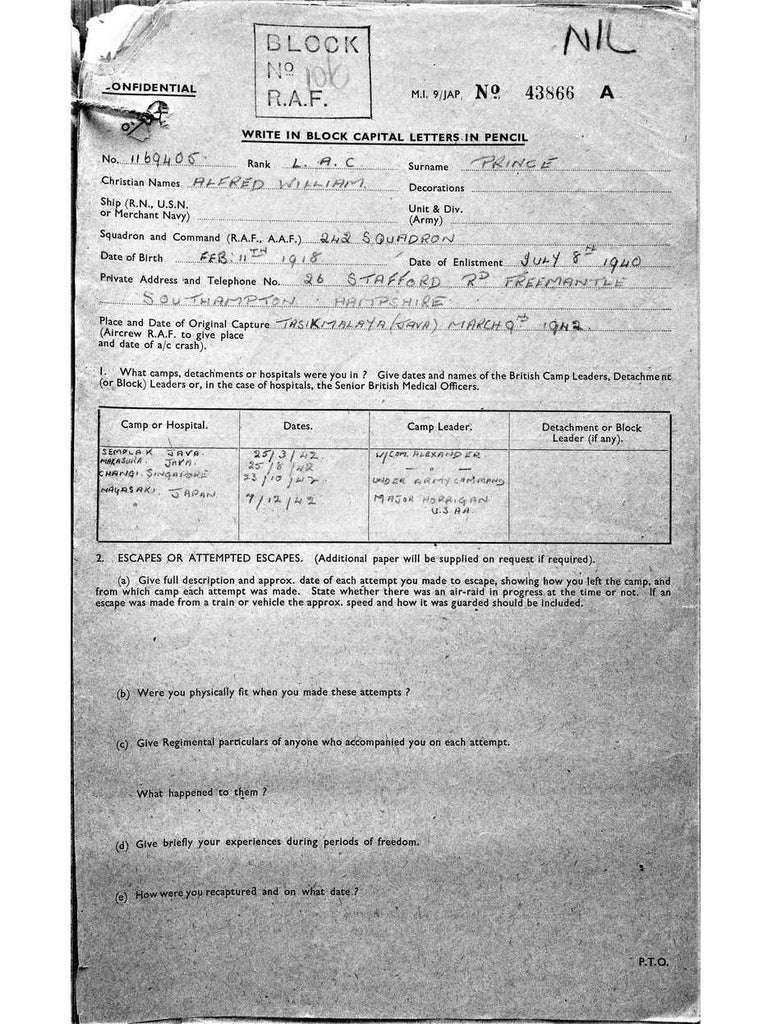 NIL
BLOCK
No 106
R.A.F.
CONFIDENTIAL
M.I. 9/JAP. No. 43866 A
WRITE IN BLOCK CAPITAL LETTERS IN PENCIL
No. 1169405 Rank L. A. C Surname PRINCE
Christian Names ALFRED WILLIAM. Decorations
Ship (R.N., U.S.N.
or Merchant Navy)
Unit & Div.
(Army)
Squadron and Command (R.A.F., A.A.F.) 242 SQUADRON
Date of Birth FEB: 11TH 1918 Date of Enlistment JULY 8TH 1940
Private Address and Telephone No. 26 STAFFORD RD FREEMANTLE
SOUTHAMPTON HAMPSHIRE
Place and Date of Original Capture TASIKMALAYA (JAVA) MARCH 9TH 1942.
(Aircrew R.A.F. to give place
and date of a/c crash).
1. What camps, detachments or hospitals were you in ? Give dates and names of the British Camp Leaders, Detachment
(or Block) Leaders or, in the case of hospitals, the Senior British Medical Officers.
Camp or Hospital. Dates. Camp Leader. Detachment or Block
Leader (if any).
SEMPLAK JAVA. 25/3/42. W/COM. ALEXANDER
MAKASURA. JAVA. 25/8/42 — " —
CHANGI. SINGAPORE 23/10/42. UNDER ARMY COMMAND
NAGASAKI, JAPAN 7/12/42 MAJOR HORRIGAN
U.S AA.
2. ESCAPES OR ATTEMPTED ESCAPES. (Additional paper will be supplied on request if required).
(a) Give full description and approx. date of each attempt you made to escape, showing how you left the camp, and
from which camp each attempt was made. State whether there was an air-raid in progress at the time or not. If an
escape was made from a train or vehicle the approx. speed and how it was guarded should be included.
(b) Were you physically fit when you made these attempts ?
(c) Give Regimental particulars of anyone who accompanied you on each attempt.
What happened to them ?
(d) Give briefly your experiences during periods of freedom.
(e) How were you recaptured and on what date ?
P.T.O.